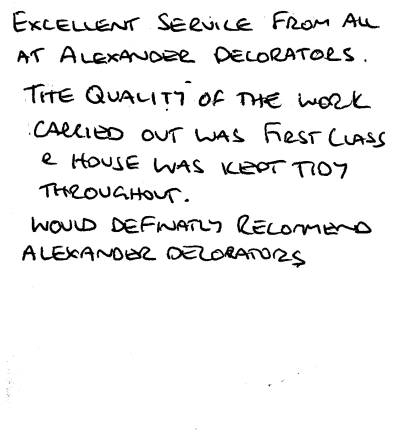 EXCELLENT SERVICE FROM ALL
AT ALEXANDER DECORATORS.
THE QUALITY OF THE WORK
CARRIED OUT WAS FIRST CLASS
& HOUSE WAS KEPT TIDY
THROUGHOUT.
WOULD DEFINATLY RECOMMEND
ALEXANDER DECORATORS